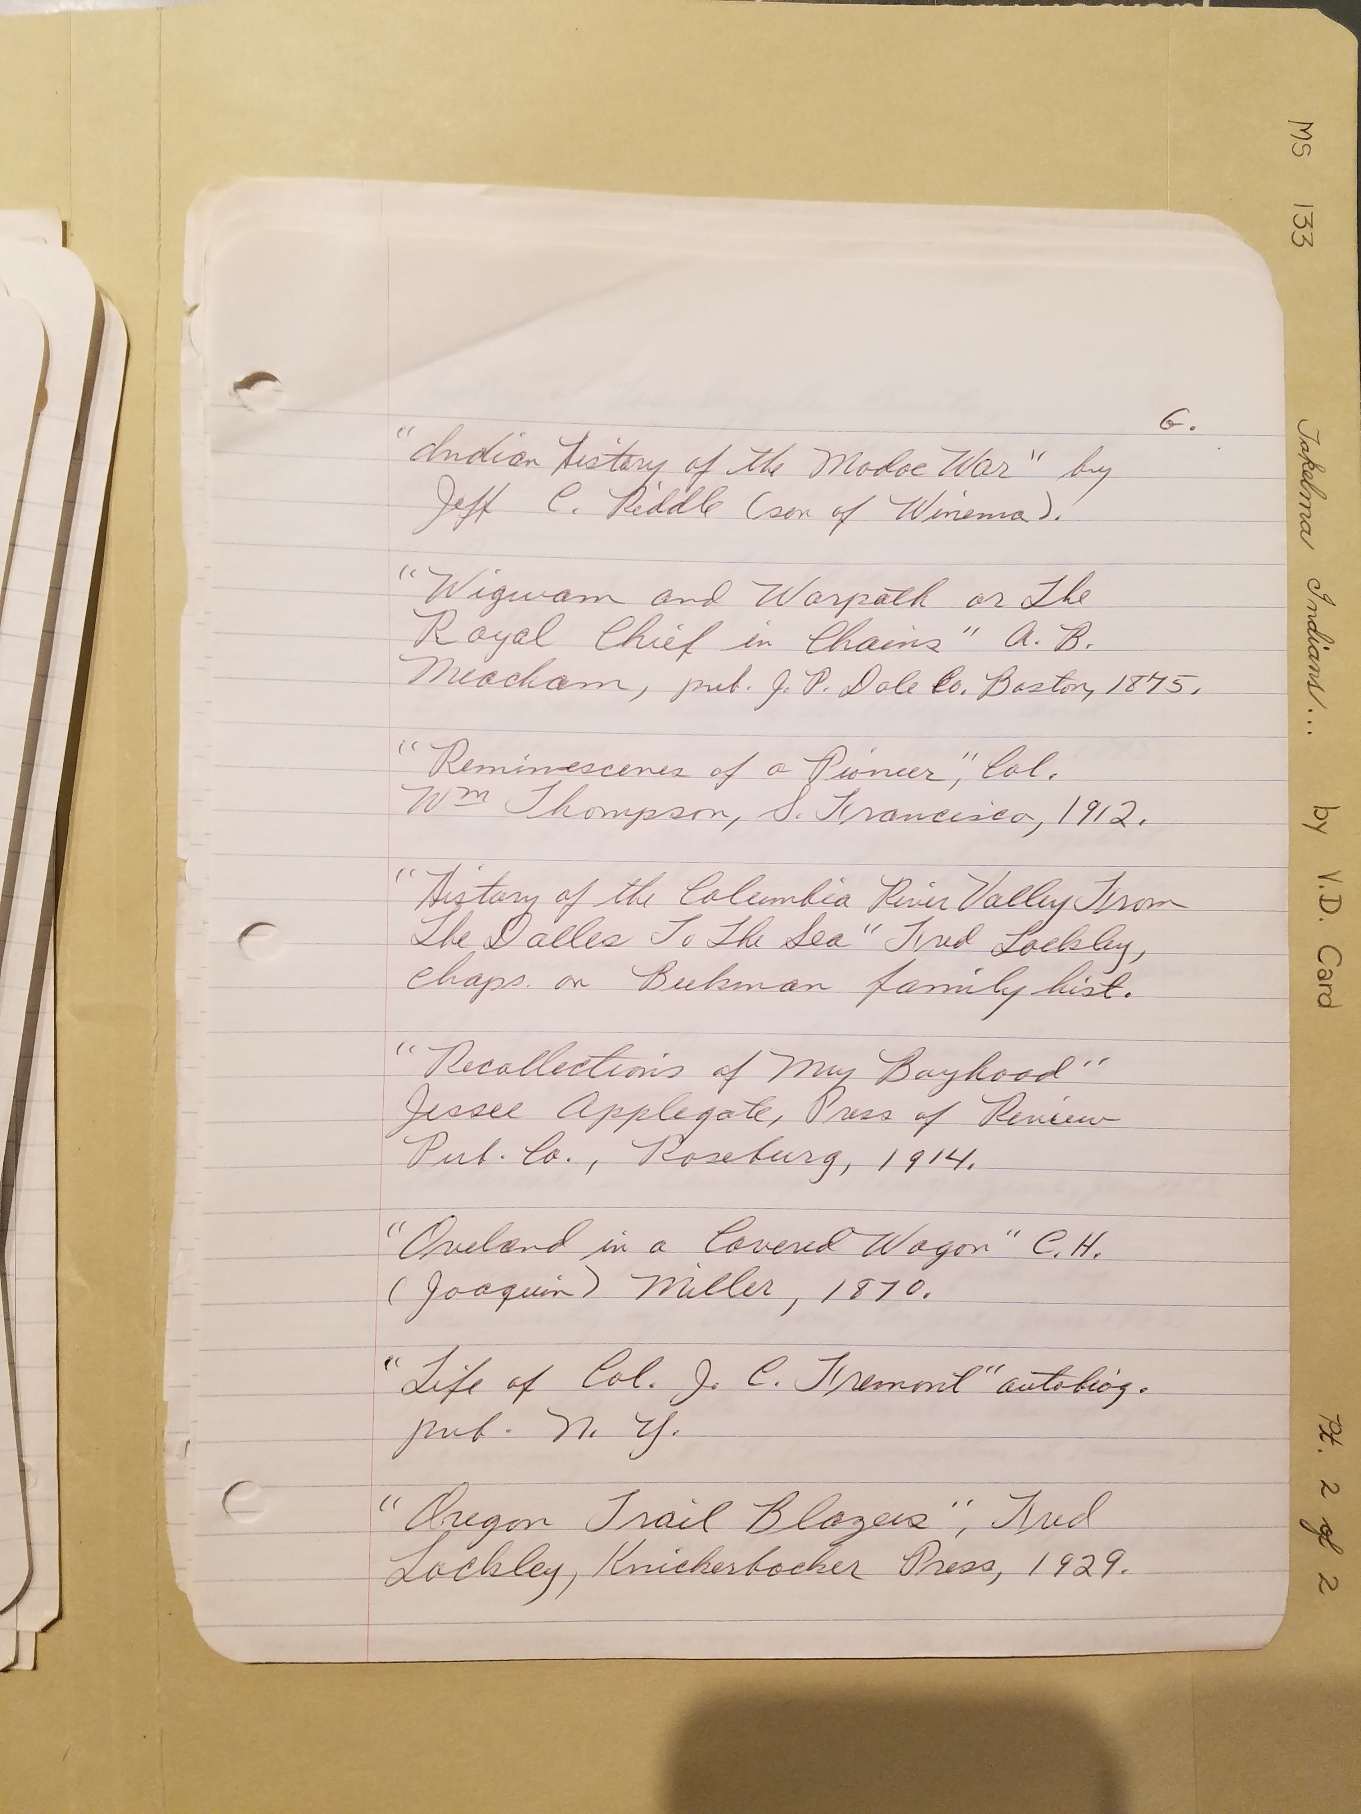 6.
"Indian History of the Modoc War" by
Jeff C. Riddle (son of Winema).
"Wigwam and Warpath or The
Royal Chief in Chains" A. B.
Meacham, pub. J. P. Dale Co. Boston, 1875.
"Reminescenes of a Pioneer", Col.
Wm Thompson, S. Francisco, 1912.
"History of the Columbia River Valley From
The Dalles To The Sea" Fred Lockley,
chaps. on Beekman family hist.
"Recollections of My Boyhood"
Jessee Applegate, Press of Review
Pub. Co., Roseburg, 1914.
"Oveland in a Covered Wagon" C.H.
(Joaquin) Miller, 1870.
"Life of Col. J. C. Fremont" autobiog.
pub. N. Y.
"Oregon Trail Blazers", Fred
Lockley, Knickerbocker Press, 1929.
MS 133 Takelma Indians... by V.D. Card Pt. 2 of 2